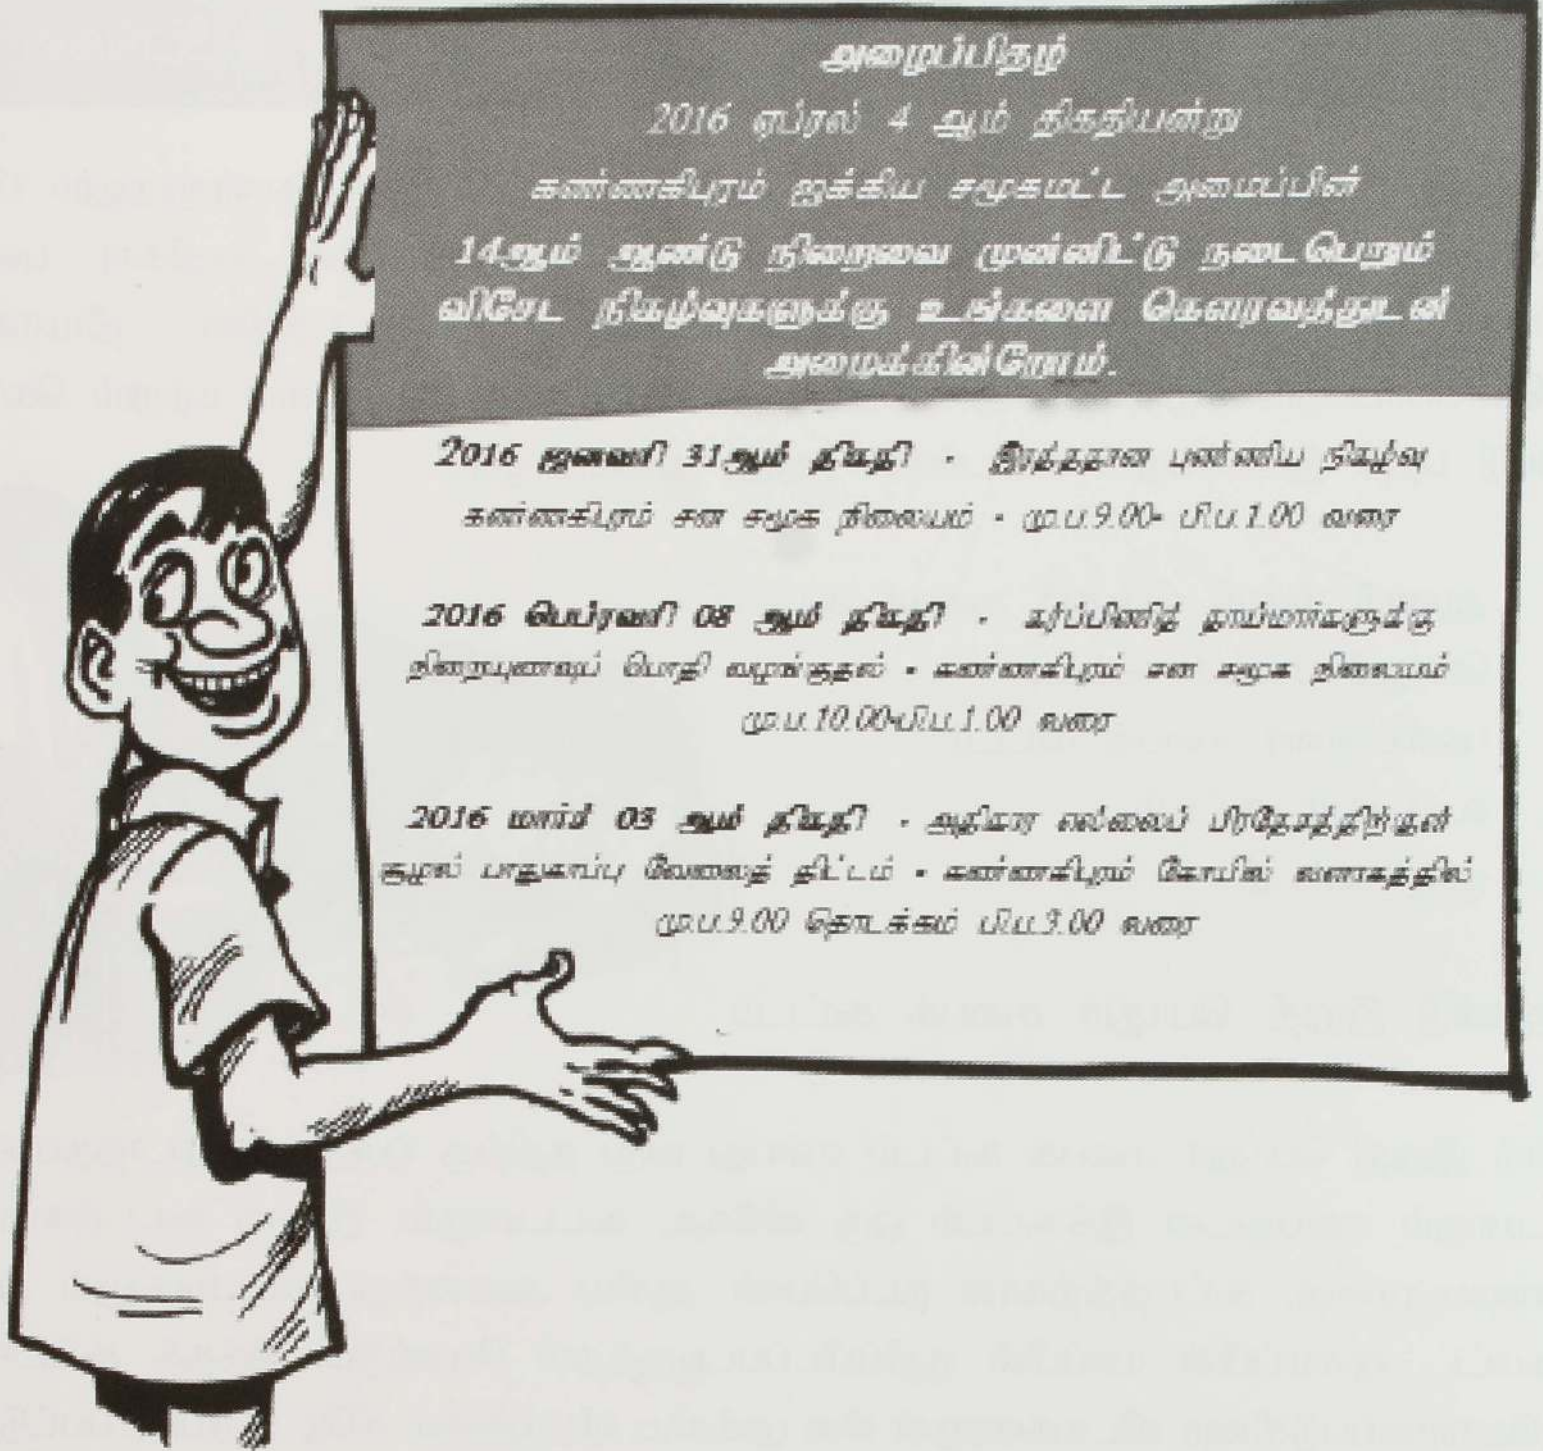 அழைப்பிதழ்
2016 ஏப்ரல் 4 ஆம் திகதியன்று
கண்ணகிபுரம் ஐக்கிய சமூகமட்ட அமைப்பின்
14ஆம் ஆண்டு நிறைவை முன்னிட்டு நடைபெறும்
விசேட நிகழ்வுகளுக்கு உங்களை கௌரவத்துடன்
அழைக்கின்றோம்.
2016 ஜனவரி 31ஆம் திகதி - இரத்ததான புண்ணிய நிகழ்வு
கண்ணகிபுரம் சன சமூக நிலையம் - மு.ப.9.00- பி.ப.1.00 வரை
2016 பெப்ரவரி 08 ஆம் திகதி - கர்ப்பிணித் தாய்மார்களுக்கு
நிறையுணவுப் பொதி வழங்குதல் - கண்ணகிபுரம் சன சமூக நிலையம்
மு.ப.10.00-பி.ப.1.00 வரை
2016 மார்ச் 03 ஆம் திகதி - அதிகார எல்லைப் பிரதேசத்திற்குள்
சூழல் பாதுகாப்பு வேலைத் திட்டம் - கண்ணகிபுரம் கோயில் வளாகத்தில்
மு.ப.9.00 தொடக்கம் பி.ப.3.00 வரை